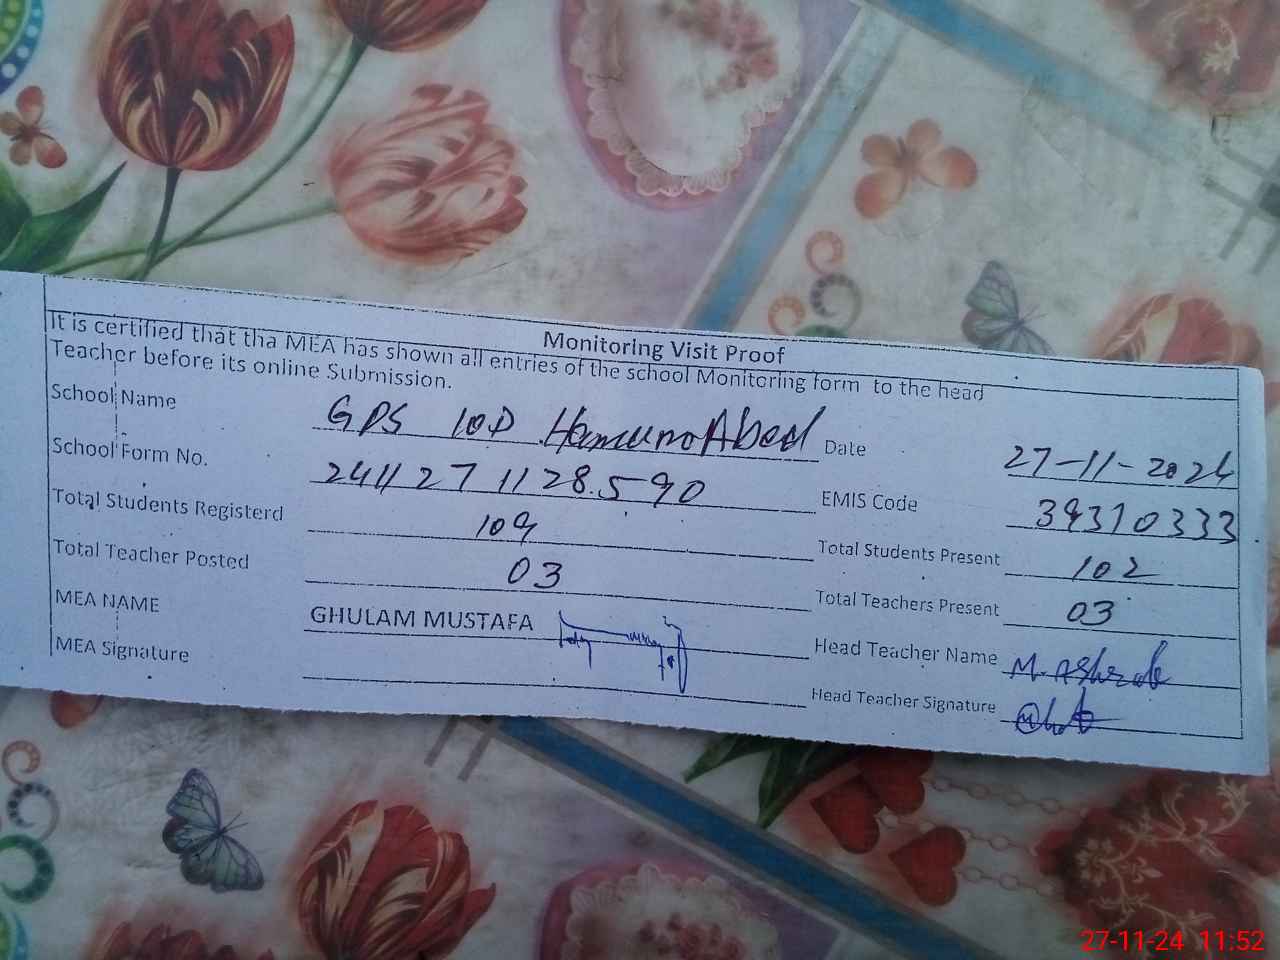 Monitoring Visit Proof
It is certified that tha MEA has shown all entries of the school Monitoring form to the head
Teacher before its online Submission.
School Name GPS 10D Date 27-11-2024
School Form No. 241127 1128.590 EMIS Code 39310333
Total Students Registerd 109 Total Students Present 102
Total Teacher Posted 03 Total Teachers Present 03
MEA NAME GHULAM MUSTAFA Head Teacher Name M. Ashraf
MEA Signature Head Teacher Signature
27-11-24 11:52